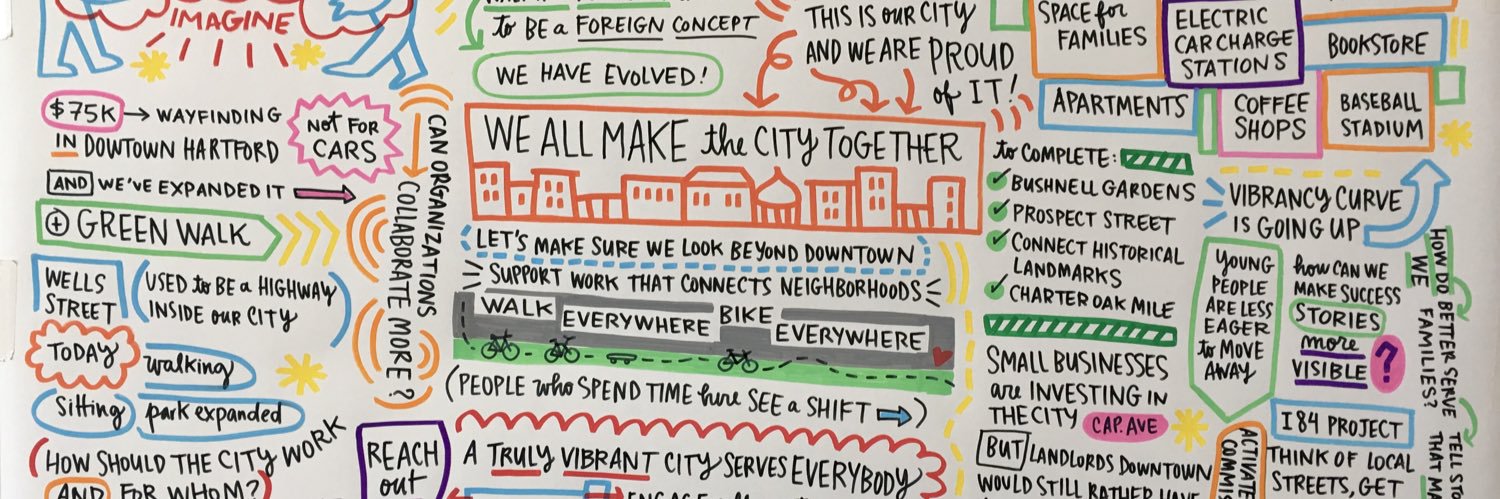 IMAGINE
$75K → WAYFINDING
IN DOWTOWN HARTFORD
NOT FOR
CARS
AND WE'VE EXPANDED IT
+ GREEN WALK
WELLS
STREET
(USED to BE a HIGHWAY
INSIDE OUR CITY
TODAY
walking
Sitting
park expanded
(HOW SHOULD THE CITY WORK
AND FOR WHOM?)
CAN ORGANIZATIONS
COLLABORATE MORE?
to BE a FOREIGN CONCEPT
WE HAVE EVOLVED!
THIS IS OUR CITY
AND WE ARE PROUD
of IT!
WE ALL MAKE the CITY TOGETHER
LET'S MAKE SURE WE LOOK BEYOND DOWNTOWN
SUPPORT WORK THAT CONNECTS NEIGHBORHOODS
WALK EVERYWHERE BIKE EVERYWHERE
(PEOPLE who SPEND TIME here SEE a SHIFT →)
REACH
out
A TRULY VIBRANT CITY SERVES EVERYBODY
SPACE for
FAMILIES
ELECTRIC
CAR CHARGE
STATIONS
BOOKSTORE
APARTMENTS
COFFEE
SHOPS
BASEBALL
STADIUM
to COMPLETE:
✓ BUSHNELL GARDENS
✓ PROSPECT STREET
✓ CONNECT HISTORICAL
LANDMARKS
✓ CHARTER OAK MILE
SMALL BUSINESSES
are INVESTING IN
THE CITY CAP. AVE
BUT LANDLORDS DOWNTOWN
WOULD STILL RATHER HAVE
VIBRANCY CURVE
IS GOING UP
YOUNG
PEOPLE
ARE LESS
EAGER
to MOVE
AWAY
how CAN WE
MAKE SUCCESS
STORIES
more
VISIBLE
?
HOW DO WE
BETTER SERVE
FAMILIES?
I84 PROJECT
THINK OF LOCAL
STREETS, GET
ACTIVATE